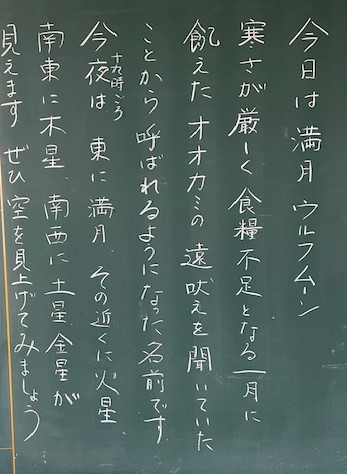 今日は満月 ウルフムーン
寒さが厳しく食糧不足となる一月に
飢えたオオカミの遠吠えを聞いていた
ことから呼ばれるようになった名前です
今夜は 東に満月、その近くに火星、
十九時ごろ
南東に木星、南西に土星、金星が
見えます ぜひ空を見上げてみましょう